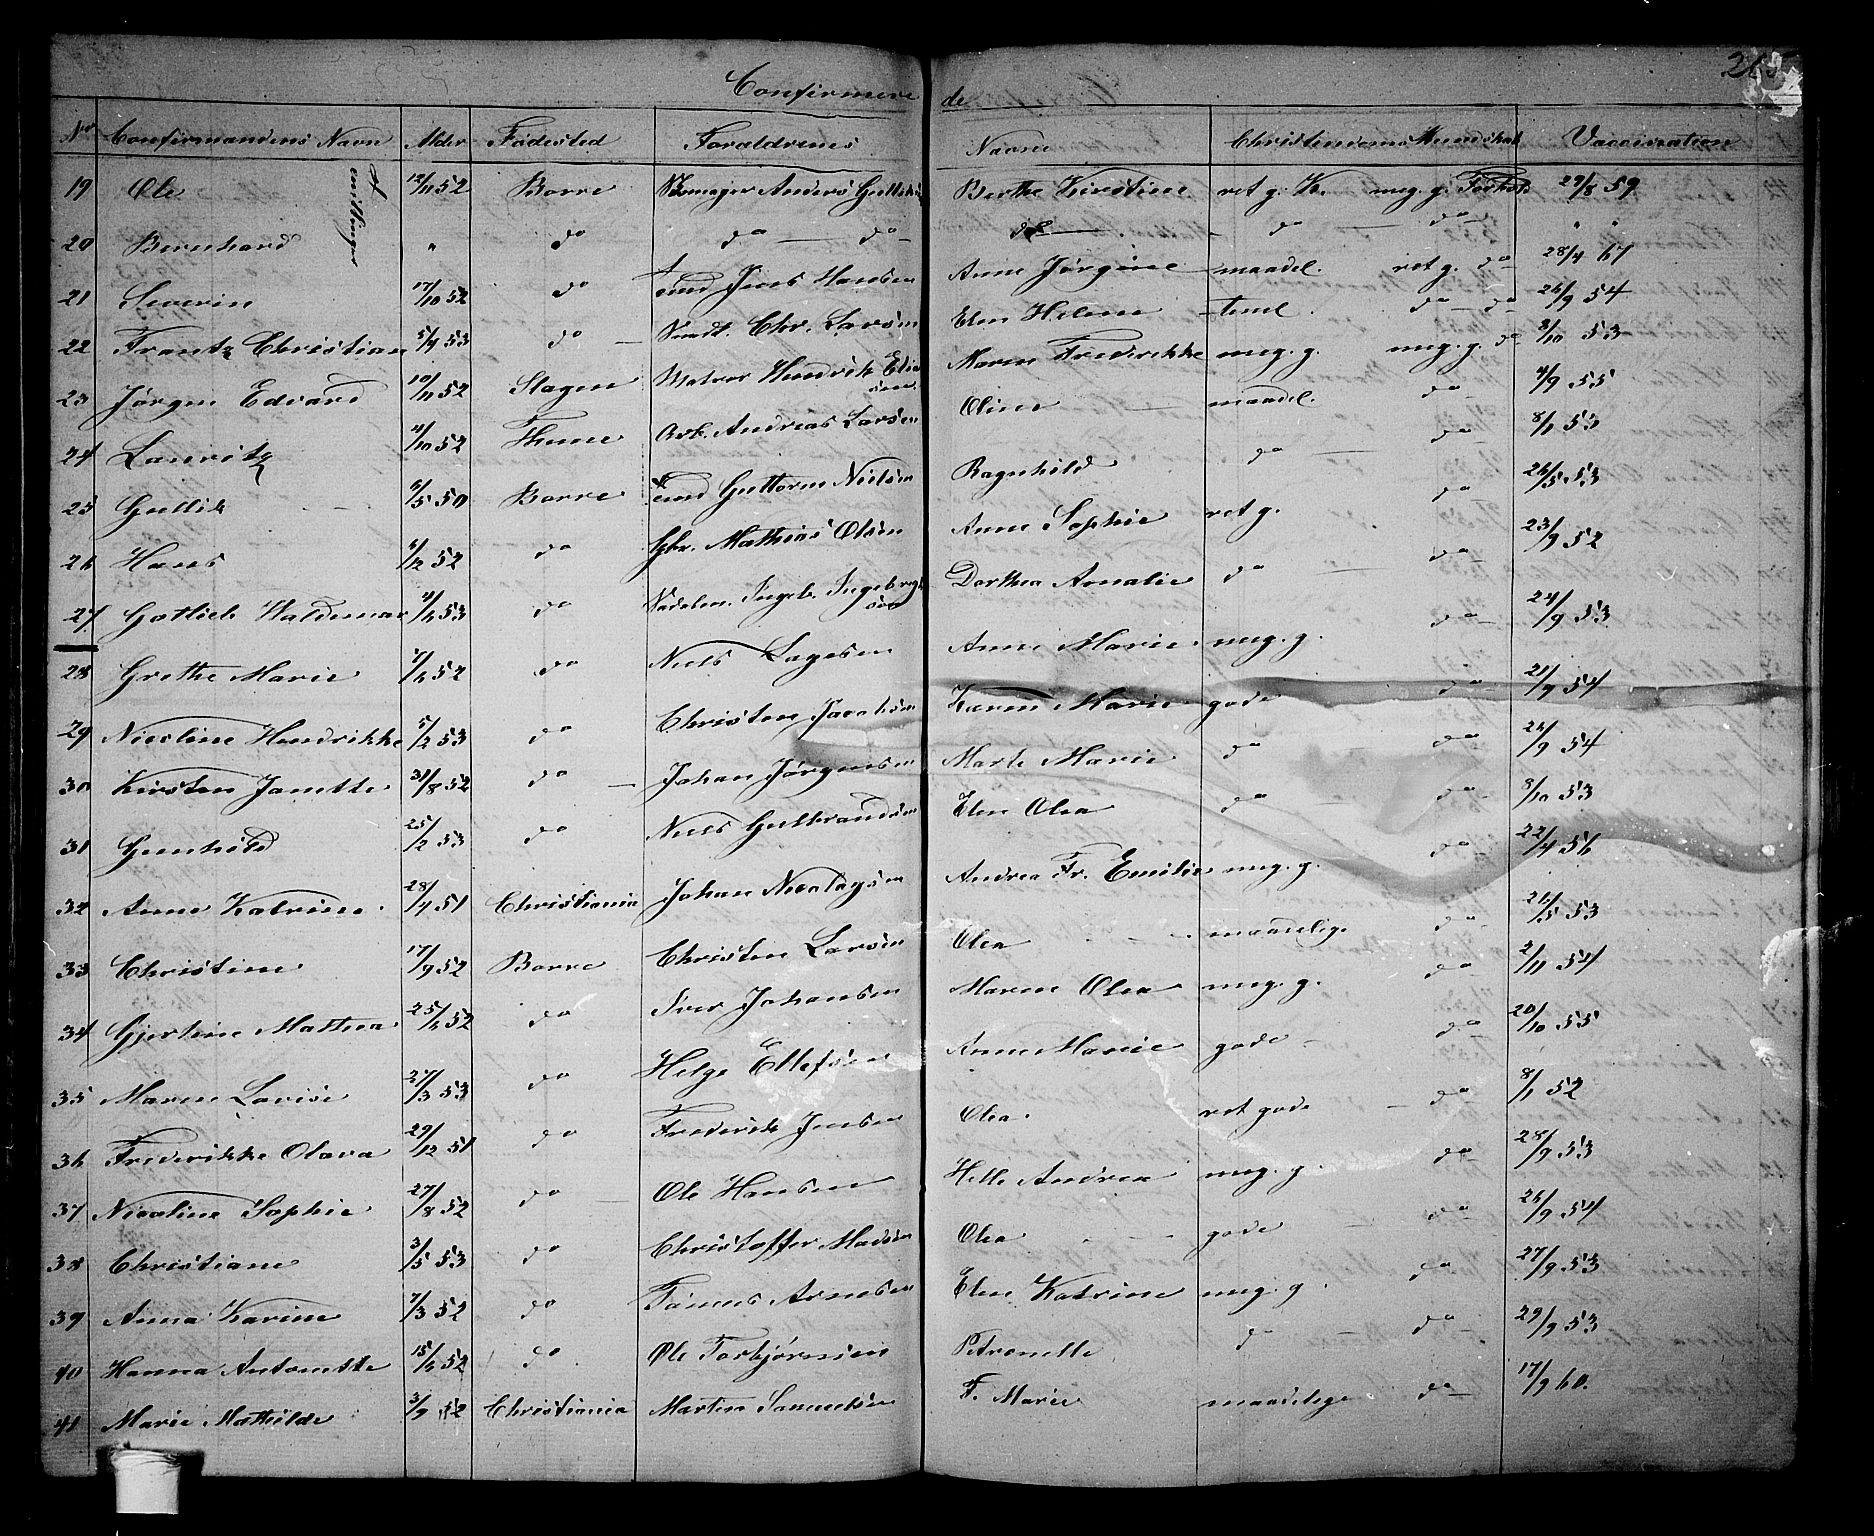 Confirmerede
Nr Confirmandens Navn Alder Fødested Forældrenes Navne Christendoms Kundskab Vaccination
19 Ole 12/11 52 Borre Anders Berthe Kirstine ret g. K. meg. g. Forhold 29/8 59
Tvillinger
20 Bernhard " do do — do do — do do " "
21 Severin 17/10 52 do Jens Hansen Anne Jørgine maadel. ret g. do 28/4 67
22 Frantz Christian 5/4 53 do Chr. Larsen Elen Helene teml. do do 26/9 54
23 Jørgen Edvard 10/11 52 Slagen Matros Hendrik Eliasen Maren Frederikke meg. g. meg. g. do 3/10 53
24 Lauritz 4/10 52 Thune Arb. Andreas Larsen Oline maadel. do 4/9 55
25 Gullik 6/5 50 Borre Guttorm Nielsen Ragnhild do do 8/1 53
26 Hans 6/12 52 do Gbr. Mathias Olsen Anne Sophie ret g. do 26/5 53
27 Gotlieb Waldemar 4/1 53 do Ingeb. Ingebregtsen Dorthea Amalie do do 23/9 52
28 Grethe Marie 52 do Niels Lagesen Anne Marie meg. g. do 24/9 53
29 Nicoline Hendrikke 5/2 53 do Christen Jacobsen Karen Marie gode do 21/9 54
30 Kirsten Janette 31/8 52 do Johan Jørgensen Marte Marie do do 26/9 54
31 Gunhild 25/2 53 do Niels Gulbrandsen Elen Olea do do 8/10 53
32 Anne Katrine 28/4 51 Christiania Johan Nicolaysen Andrea Fr. Emilie meg. g. do 22/4 56
33 Christine 17/9 52 Borre Christen Larsen Olea maadelige do 53
34 Gjertine Mathea 25/6 52 do Iver Johansen Maren Olea meg. g. do 2/11 54
35 Maren Lovise 27/3 53 do Helge Ellefsen Anne Marie gode do 20/10 55
36 Frederikke Olava 29/12 51 do Frederik Jensen Olea ret gode do 8/1 52
37 Nicoline Sophie 27/8 52 do Ole Hansen Helle Andrea meg. g. do 28/9 53
38 Christiane 3/5 53 do Christoffer Madsen Olea gode do 26/9 54
39 Anna Karine 7/3 52 do Arnesen Elen Katrine meg. g. do 27/9 53
40 Hanna Antonette 15/6 52 do Ole Torbjørnsen Petronelle do do 29/9 53
41 Marie Mathilde 3/9 52 Christiania Martin Samuelsen F. Marie maadelige do 17/9 60.